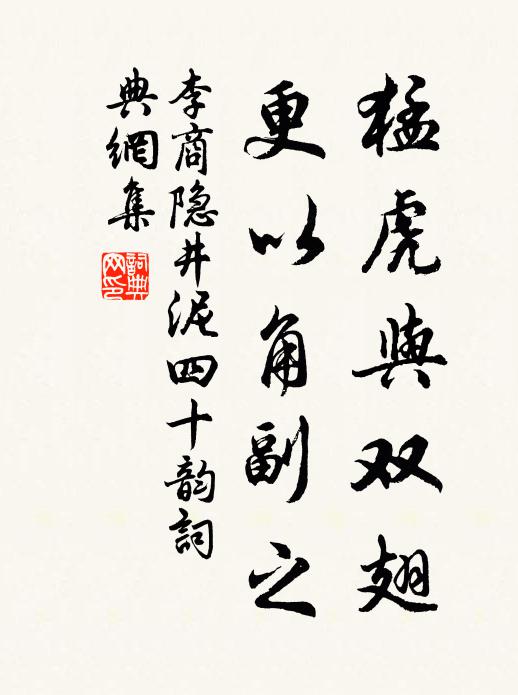 猛虎與双翅
更以角副之
李商隐井泥四十韵詞
典網集
詞典网印